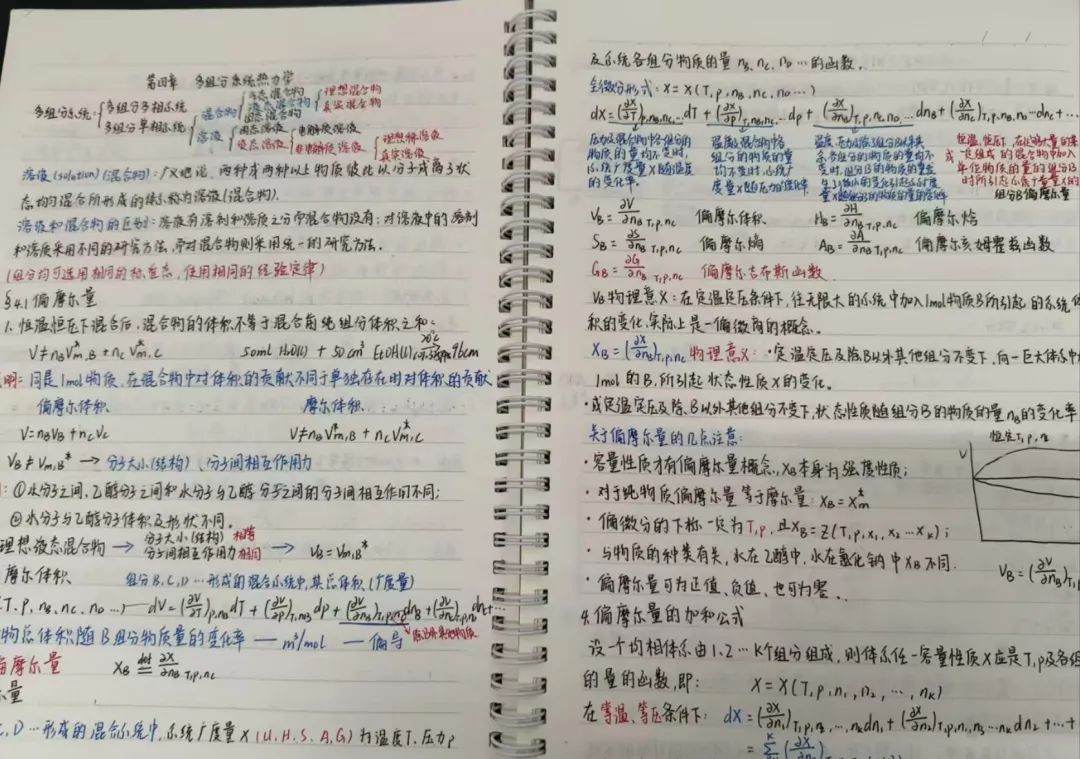 第四章 多组分系统热力学
多组分系统 { 多组分多相系统
多组分单相系统 { 混合物 { 气态混合物
液态混合物 { 理想混合物
真实混合物
固态混合物
溶液 { 固态溶液
液态溶液 { 电解质溶液
非电解质溶液 { 理想稀溶液
真实溶液
溶液(solution)(混合物): 广义地说, 两种或两种以上物质彼此以分子或离子状
态均匀混合所形成的体系称为溶液(混合物).
溶液和混合物的区别: 溶液有溶剂和溶质之分而混合物没有; 对溶液中的溶剂
和溶质采用不同的研究方法, 而对混合物则采用统一的研究方法.
(组分均可选用相同的标准态, 使用相同的经验定律)
§4.1 偏摩尔量
1. 恒温恒压下混合后, 混合物的体积不等于混合前纯组分体积之和:
V≠nBV*m,B + nCV*m,C 50ml H2O(l) + 50cm³ EtOH(l) 20℃ 96cm
明: 同是1mol物质, 在混合物中对体积的贡献不同于单独存在时对体积的贡献
偏摩尔体积 摩尔体积
V=nBVB+nCVC V≠nBV*m,B + nCV*m,C
VB≠Vm,B* → 分子大小(结构)、分子间相互作用力
: ①水分子之间, 乙醇分子之间和水分子与乙醇分子之间的分子间相互作用不同;
②水分子与乙醇分子体积及形状不同.
理想液态混合物 → 分子大小(结构) 相等
分子间相互作用力相同 → VB=Vm,B*
摩尔体积 组分B,C,D…形成的混合系统中, 其总体积(广度量)
(T,p,nB,nC,nD…) — dV=(∂V/∂T)p,nB dT + (∂V/∂p)T,nB dp + (∂V/∂nB)T,p,nC dnB + (∂V/∂nC)T,p,nB dnC+…
物总体积随B组分物质量的变化率 — m³/mol — 偏导
偏摩尔量 XB def= ∂X/∂nB T,p,nC
尔量
C, D…形成的混合系统中, 系统广度量X(U,H,S,A,G)为温度T、压力p
及系统各组分物质的量 nB, nC, nD…的函数.
全微分形式: X=X(T,p,nB,nC,nD…)
dX=(∂X/∂T)p,nB,nC… dT + (∂X/∂p)T,nB,nC… dp + (∂X/∂nB)T,p,nC,nD… dnB + (∂X/∂nC)T,p,nB,nD… dnC+…
压力及混合物中各组分的
物质的量均不变时,
系统广度量X随温度
的变化率.
温度及混合物中各
组分的物质的量
均不变时, 系统广
度量X随压力的变化率
恒温、恒压下, 在足够大量的某
一定组成的混合物中加入
单位物质的量的组分B
时所引起系统广度量X的
组分B偏摩尔量
VB=∂V/∂nB T,p,nC 偏摩尔体积 HB=∂H/∂nB T,p,nC 偏摩尔焓
SB=∂S/∂nB T,p,nC 偏摩尔熵 AB=∂A/∂nB T,p,nC 偏摩尔亥姆霍兹函数
GB=∂G/∂nB T,p,nC 偏摩尔吉布斯函数
VB物理意义: 在定温定压条件下, 往无限大的系统中加入1mol物质B所引起的系统体
积的变化, 实际上是一偏微商的概念.
XB=(∂X/∂nB)T,p,nC 物理意义: ·定温定压及除B以外其他组分不变下, 向一巨大体系中
1mol的B, 所引起状态性质X的变化.
·或定温定压及除B以外其他组分不变下, 状态性质随组分B的物质的量nB的变化率
关于偏摩尔量的几点注意:
·容量性质才有偏摩尔量概念, XB本身为强度性质;
·对于纯物质偏摩尔量等于摩尔量: XB=X*m
·偏微分的下标一定为T,p, 且XB=Z(T,p,x1,x2…xK);
·与物质的种类有关, 水在乙醇中, 水在氯化钠中XB不同.
·偏摩尔量可为正值、负值、也可为零.
V
VB=(∂V/∂nB)T,p
4. 偏摩尔量的加和公式
设一个均相体系由1, 2…K个组分组成, 则体系任一容量性质X应是T,p及各组
的量的函数, 即: X=X(T,p,n1,n2,…,nK)
在等温、等压条件下: dX=(∂X/∂n1)T,p,n2,…nK dn1 + (∂X/∂n2)T,p,n1,n3…nK dn2+…+